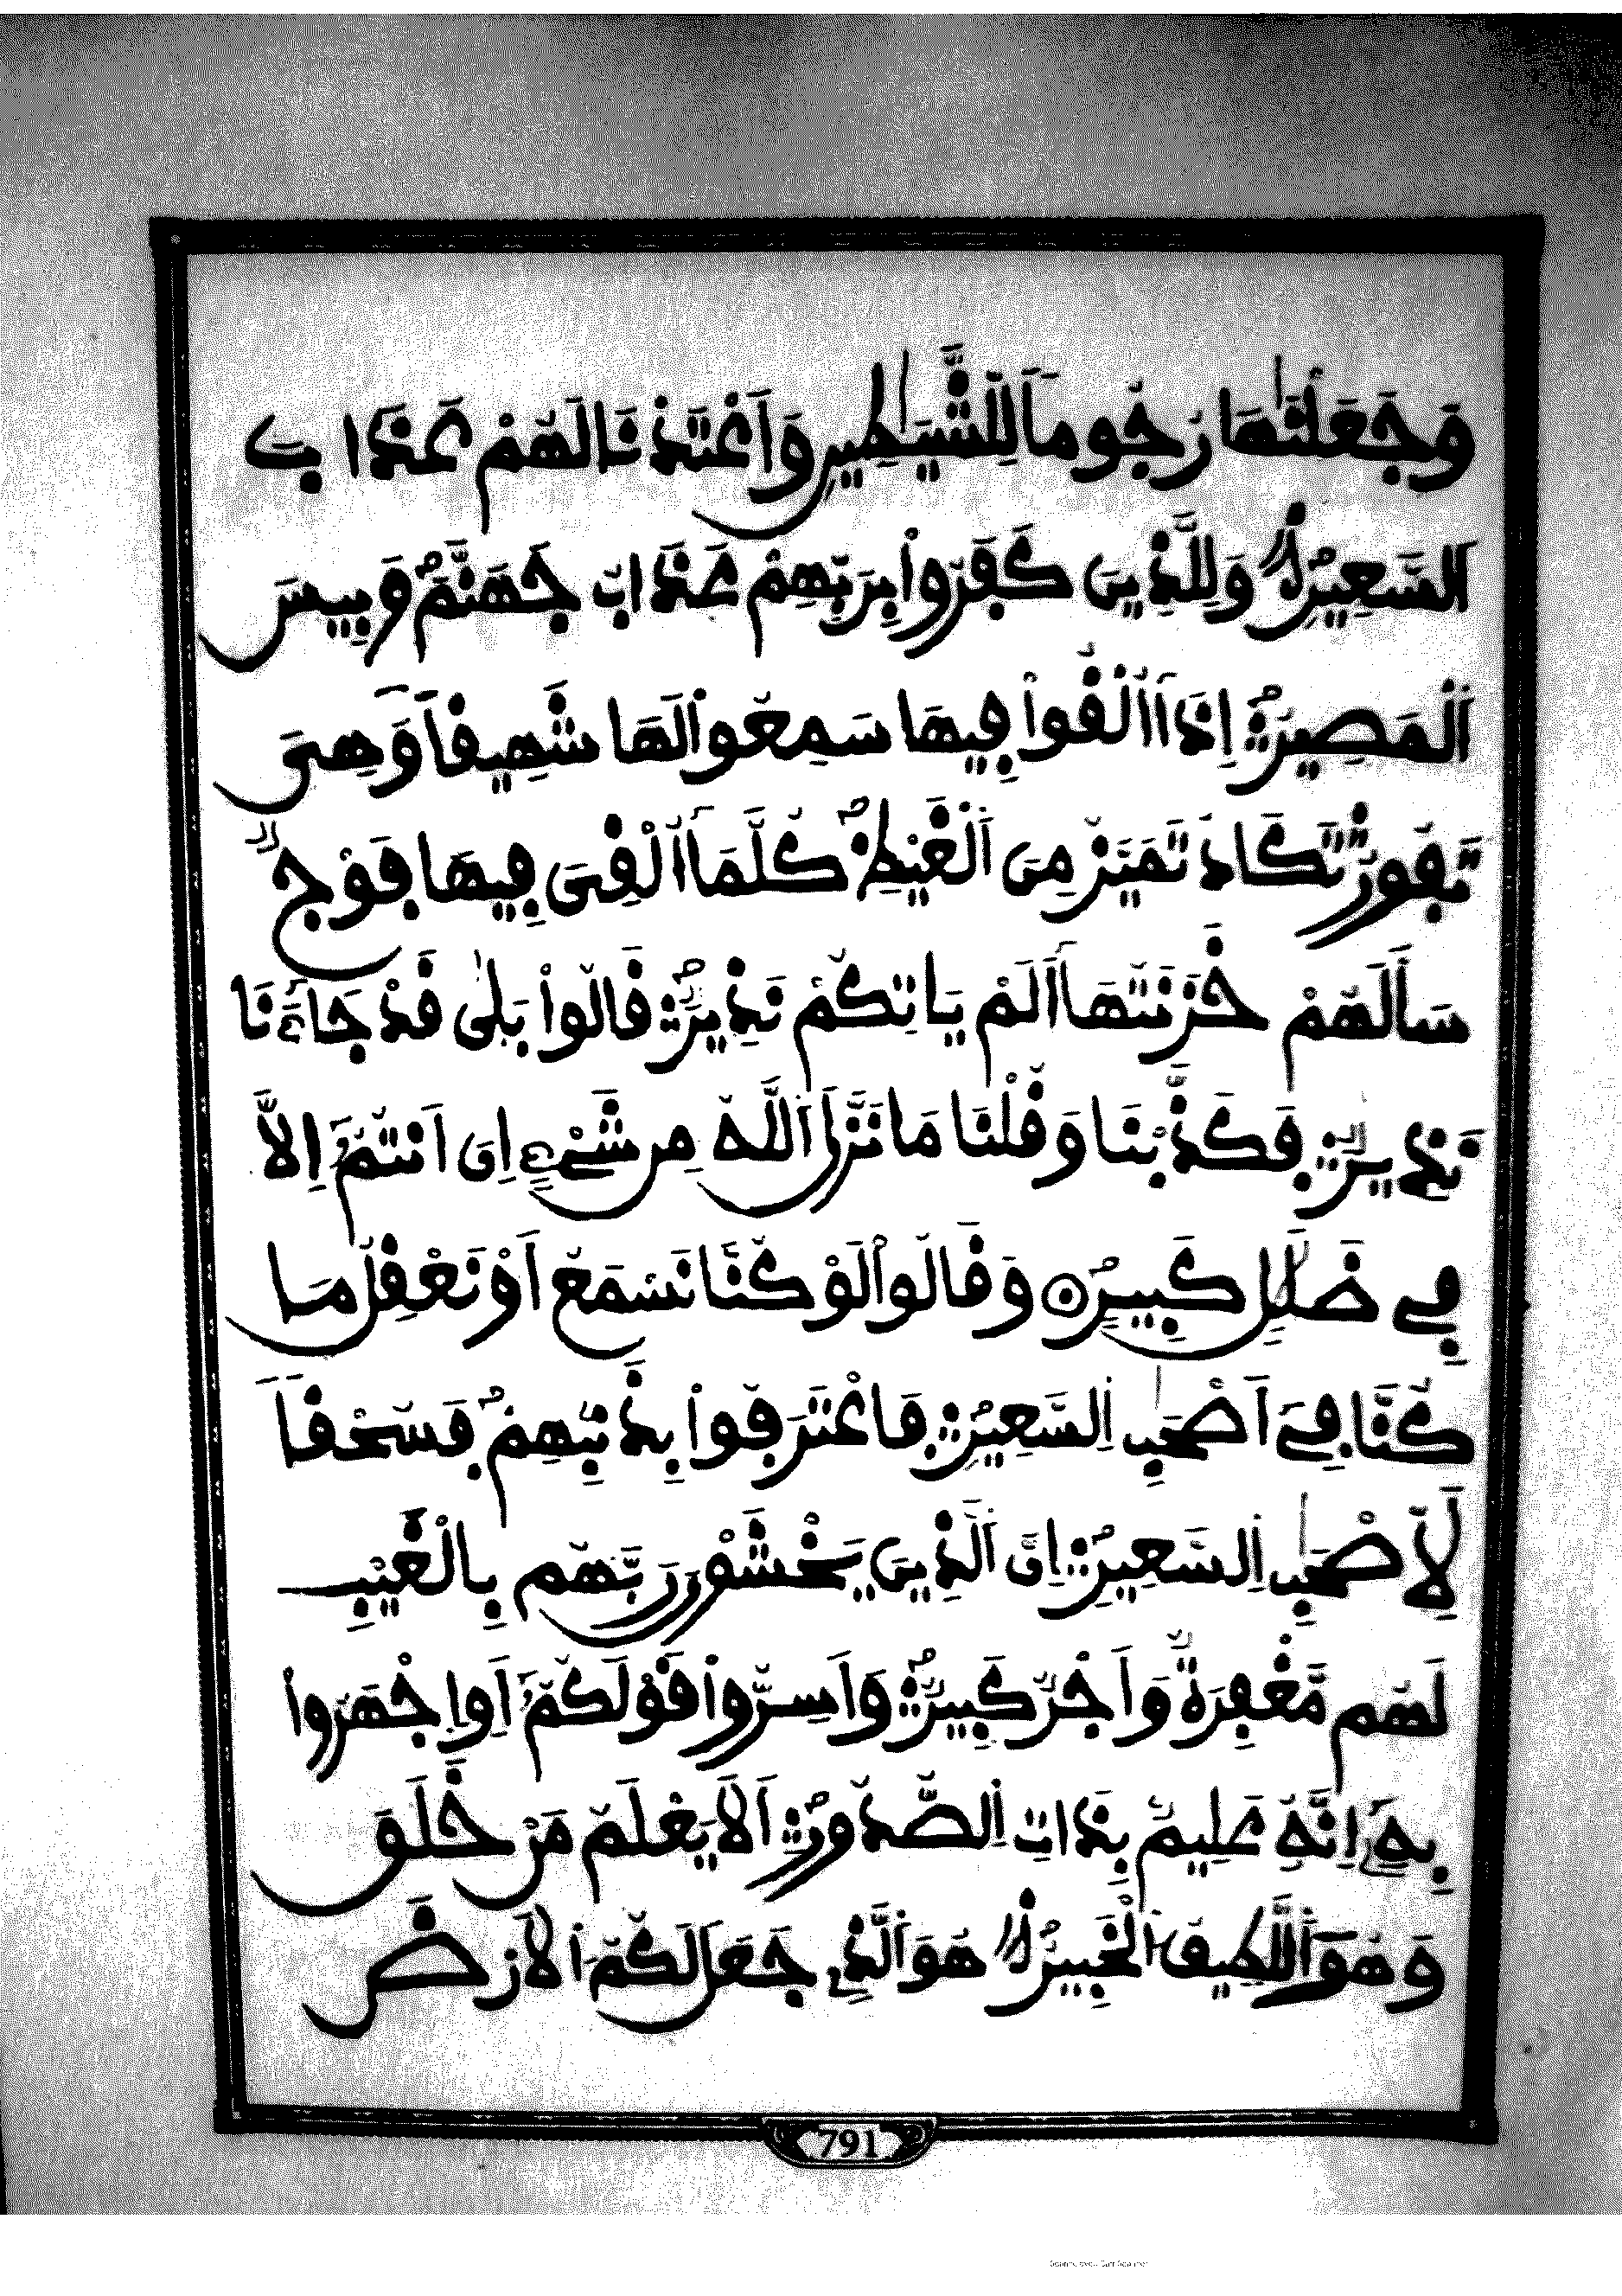 وَجَعَلْنَٰهَا رُجُوماً لِّلشَّيَٰطِينِ وَأَعْتَدْنَا لَهُمْ عَذَابَ
اَ۬لسَّعِيرِ وَلِلذِينَ كَفَرُواْ بِرَبِّهِمْ عَذَابُ جَهَنَّمَ وَبِيسَ
اَ۬لْمَصِيرُ إِذَا أُلْقُواْ فِيهَا سَمِعُواْ لَهَا شَهِيقاً وَهِىَ
تَفُورُ تَكَادُ تَمَيَّزُ مِنَ اَ۬لْغَيْظِ كُلَّمَا أُلْقِىَ فِيهَا فَوْجٌ
سَأَلَهُمْ خَزَنَتُهَا أَلَمْ يَاتِكُمْ نَذِيرٌ قَالُواْ بَلَىٰ قَدْ جَآءَنَا
نَذِيرٌ فَكَذَّبْنَا وَقُلْنَا مَا نَزَّلَ اَ۬للَّهُ مِن شَےْءٍ اِنَ اَنتُمُ إِلاَّ
فِے ضَلَٰلٍ كَبِيرٍ ۝ وَقَالُواْ لَوْ كُنَّا نَسْمَعُ أَوْ نَعْقِلُ مَا
كُنَّا فِے أَصْحَٰبِ اِ۬لسَّعِيرِ فَاعْتَرَفُواْ بِذَنۢبِهِمْ فَسُحْقاً
لِّأَصْحَٰبِ اِ۬لسَّعِيرِ إِنَّ اَ۬لذِينَ يَخْشَوْنَ رَبَّهُم بِالْغَيْبِ
لَهُم مَّغْفِرَةٌ وَأَجْرٌ كَبِيرٌ وَأَسِرُّواْ قَوْلَكُمُ أَوِ اِ۪جْهَرُواْ
بِهِۦ إِنَّهُۥ عَلِيمٌ بِذَاتِ اِ۬لصُّدُورِ أَلاَ يَعْلَمُ مَنْ خَلَقَ
وَهُوَ اَ۬للَّطِيفُ اُ۬لْخَبِيرُ هُوَ اَ۬لذِے جَعَلَ لَكُمُ اُ۬لاَرْضَ
791